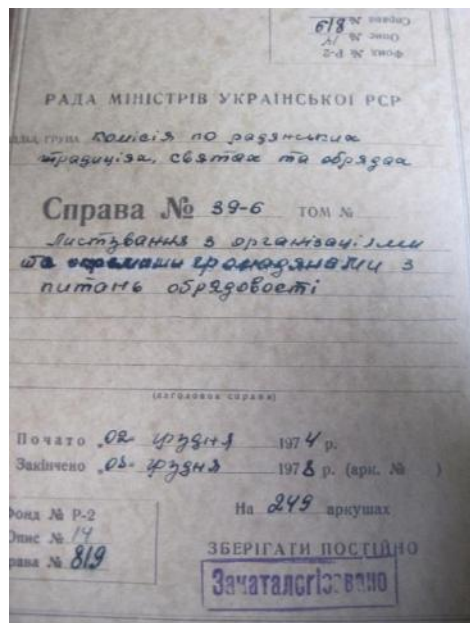 Фонд № Р-2
Опис № 14
Справа № 819
РАДА МІНІСТРІВ УКРАЇНСЬКОЇ РСР
ГРУПА Комісія по радянських
традиціях, святах та обрядах
Справа № 39-6 ТОМ №
Листування з організаціями
та окремими громадянами з
питань обрядовості
(заголовок справи)
Почато „02 грудня 1974 р.
Закінчено „05 грудня 1978 р. (арк. № )
На 249 аркушах
Фонд № Р-2
Опис № 14
Справа № 819
ЗБЕРІГАТИ ПОСТІЙНО
Закаталогізовано